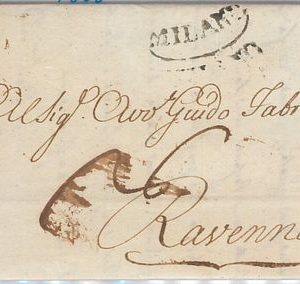 MILANO
Al Sigr. Avvo. Guido Fabr
6
Ravenna